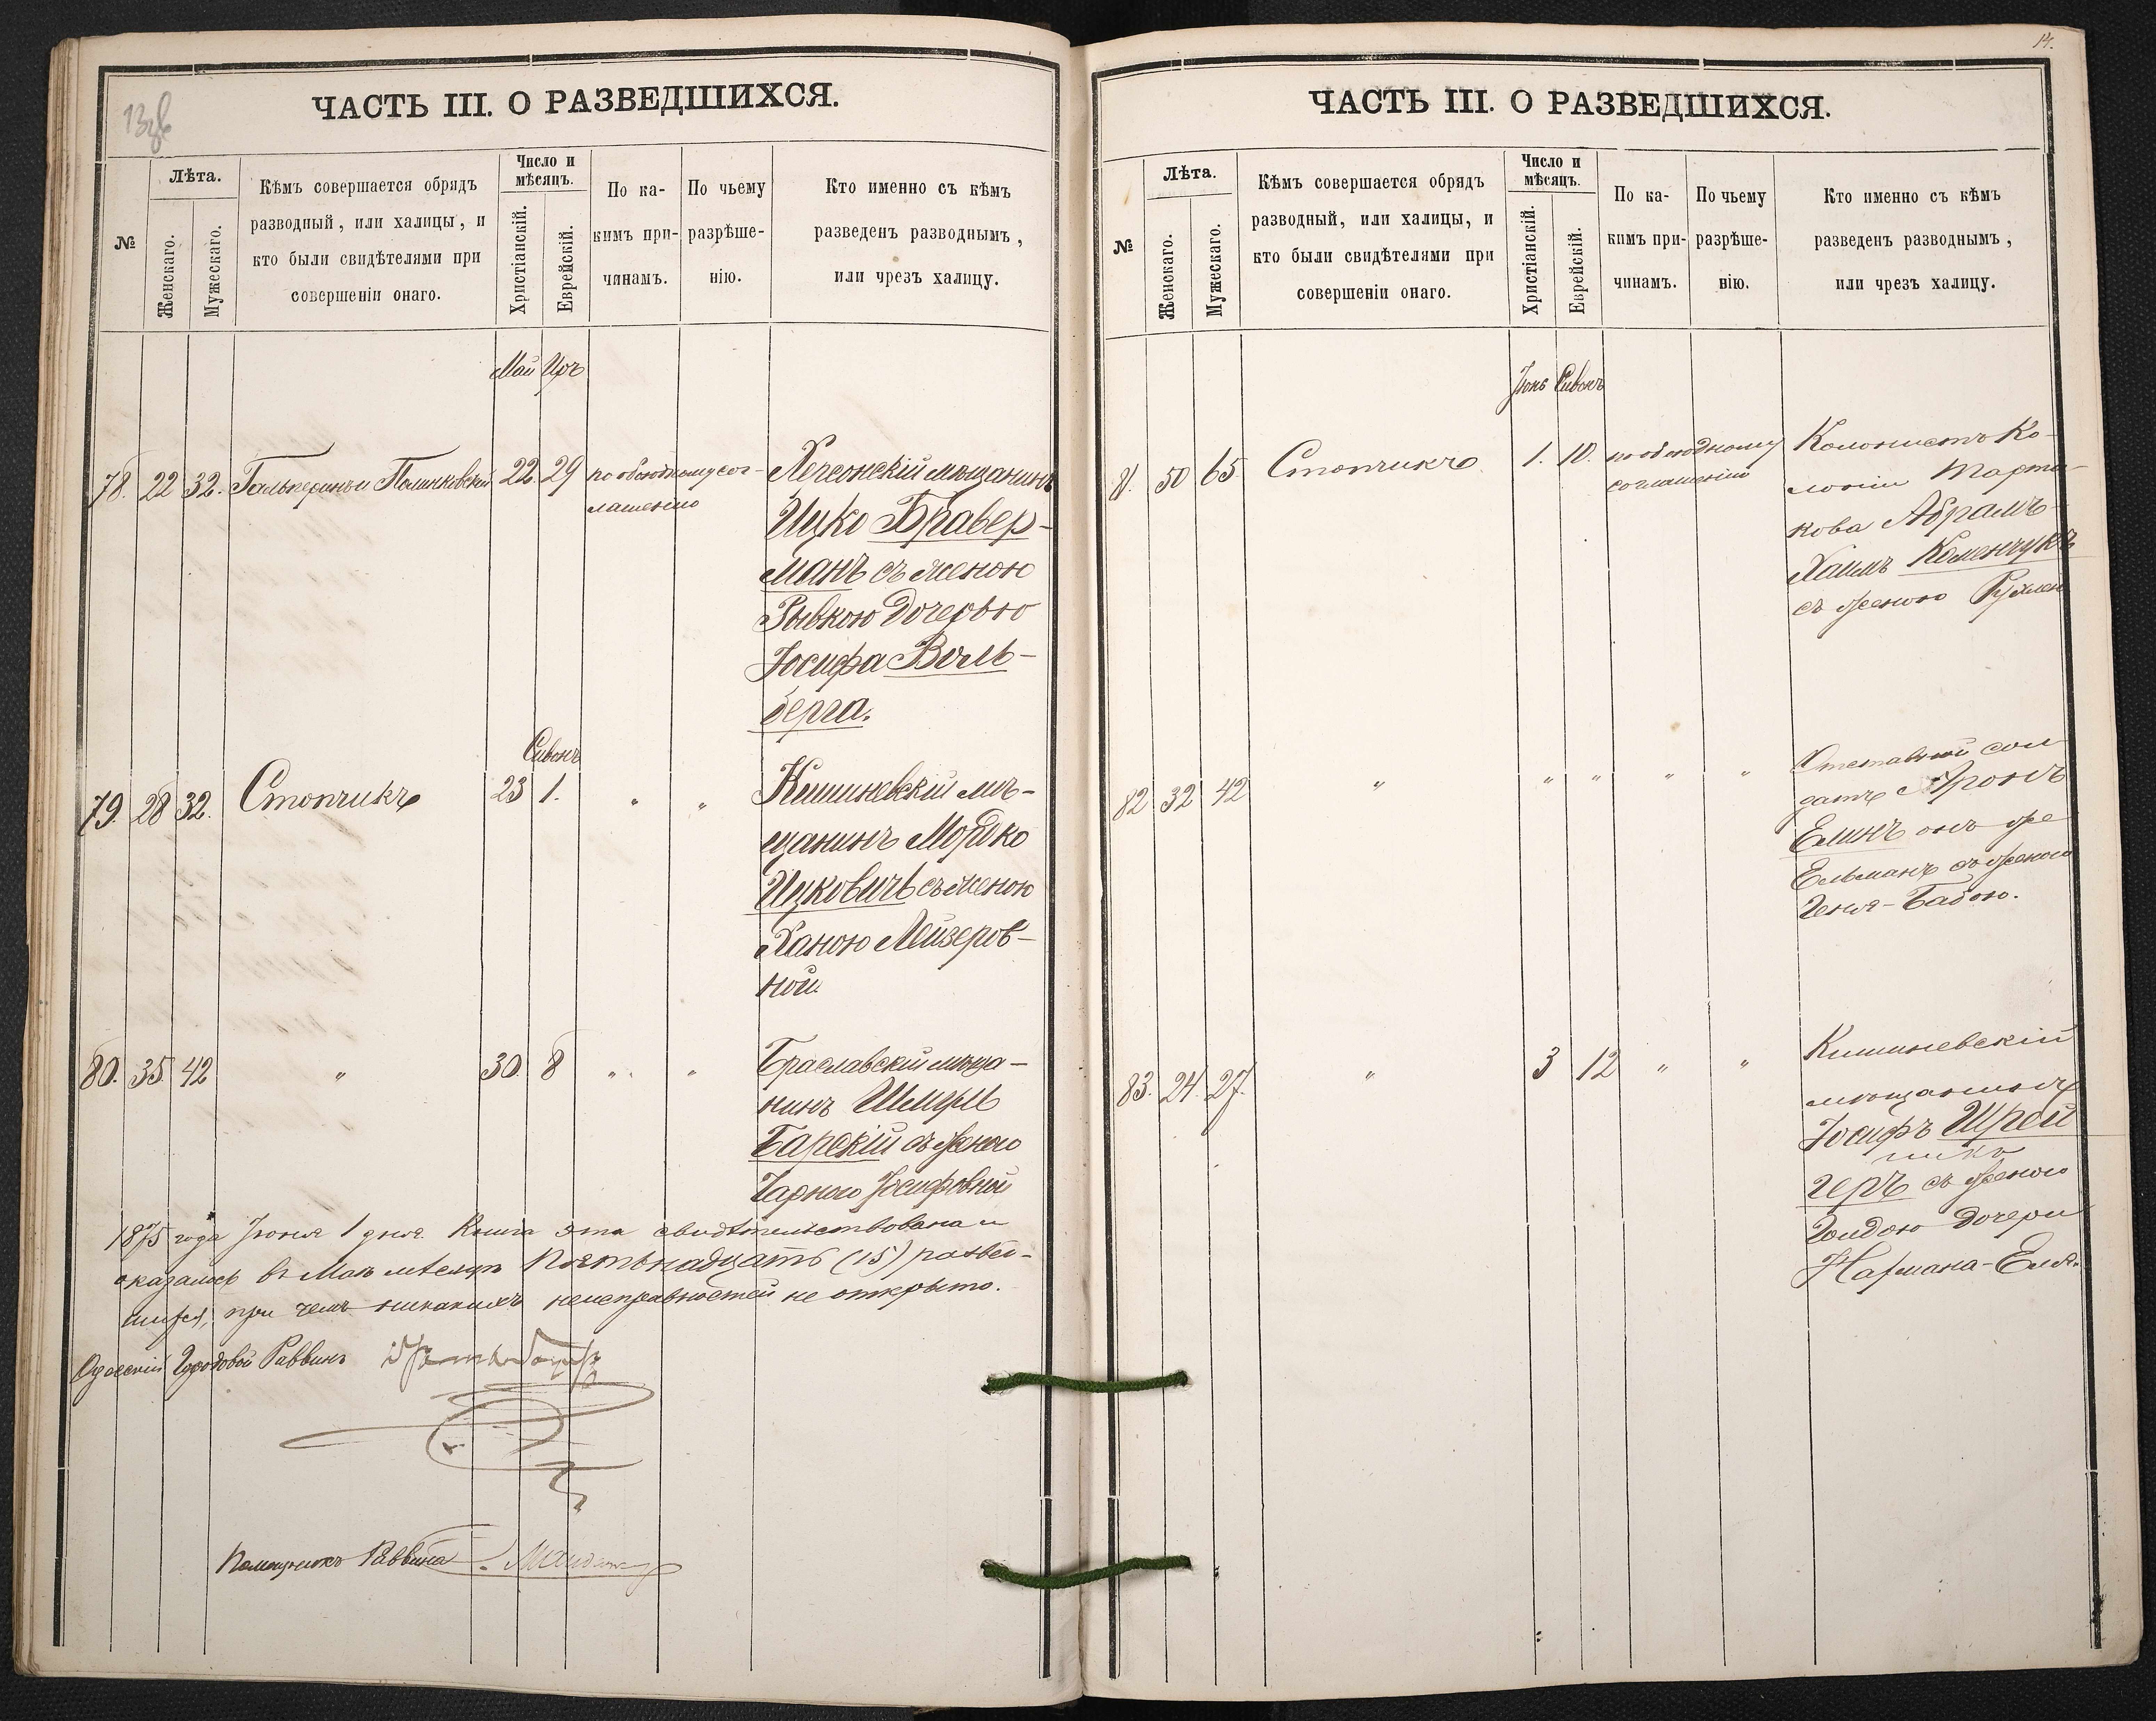 13об
ЧАСТЬ III. О РАЗВЕДШИХСЯ.
№
Лѣта.
Женскаго.
Мужескаго.
Кѣмъ совершается обрядъ
разводный, или халицы, и
кто были свидѣтелями при
совершеніи онаго.
Число и
мѣсяцъ.
Христіанскій.
Еврейскій.
По ка-
кимъ при-
чинамъ.
По чьему
разрѣше-
нію.
Кто именно съ кѣмъ
разведенъ разводнымъ,
или чрезъ халицу.
Май Иръ
78. 22 32. Гальперинъ и Полинковскій 22. 29 по обоюдному сог-
лашенію
Херсонскій мѣщанинъ
Ицко Бравер-
манъ съ женою
Рывкою дочерью
Іосифа Воль-
берга.
Сивонъ
79. 28 32. Стопчикъ 23 1. " "
Кишиневскій мѣ-
щанинъ Мошко
Ицковичъ съ женою
Ханою Лейзеров-
ной
80. 35. 42 " 30. 8 " "
Браславскій мѣща-
нинъ Шмуль
Барскій съ женою
Чарною Іосифовной
1875 года Іюня 1 дня. Книга эта свидѣтельствована и
оказалось въ Маѣ мѣсяцѣ Пятьнадцать (15) развед-
шихся, при чемъ никакихъ неисправностей не открыто.
Одесскій Городовой Раввинъ
Помощникъ Раввина
14.
ЧАСТЬ III. О РАЗВЕДШИХСЯ.
№
Лѣта.
Женскаго.
Мужескаго.
Кѣмъ совершается обрядъ
разводный, или халицы, и
кто были свидѣтелями при
совершеніи онаго.
Число и
мѣсяцъ.
Христіанскій.
Еврейскій.
По ка-
кимъ при-
чинамъ.
По чьему
разрѣше-
нію.
Кто именно съ кѣмъ
разведенъ разводнымъ,
или чрезъ халицу.
Іюнь Сивонъ
50 65. Стопчикъ 1. 10. по обоюдному
соглашенію
Колонистъ Ко-
лоніи Марта-
кова Абрамъ-
Хаимъ Коменчукъ
съ женою Рухлей
82 32 42 " " " " "
Отставной сол
датъ Аронъ
Елинъ онъ же
Ельманъ съ женою
Геня-Бабою.
83. 24. 27. " 3 12 " "
Кишиневскій
мѣщанинъ
Іосифъ Шрей
геръ съ женою
Голдою дочери
Нахмана-Еля.